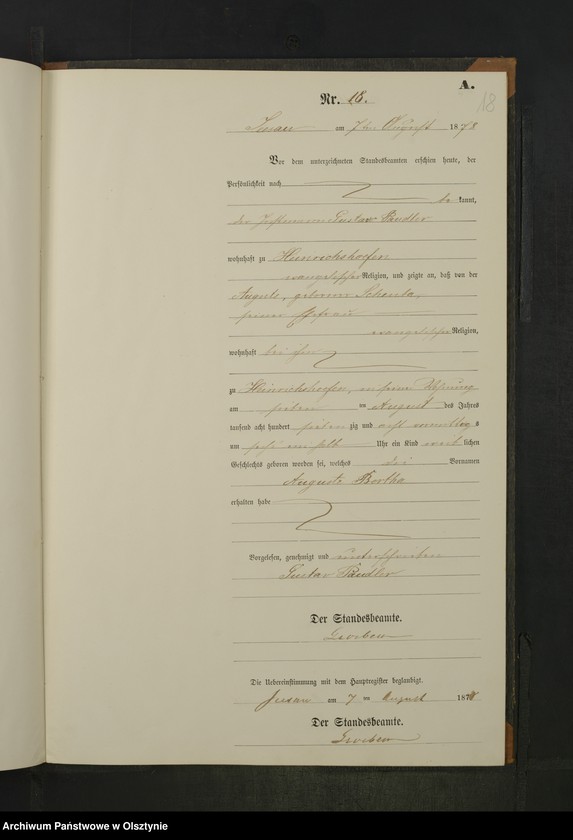 A.
18
Nr. 18.
am 7ten August 1878
Vor dem unterzeichneten Standesbeamten erschien heute, der
Persönlichkeit nach
be kannt,
der Gustav
wohnhaft zu Heinrichshofen
evangelischer Religion, und zeigte an, daß von der
Auguste, geborene
seiner Ehefrau
evangelischer Religion,
wohnhaft bei ihm
zu Heinrichshofen, in seiner Wohnung
am sieben ten August des Jahres
tausend acht hundert sieben zig und acht vormittag s
um sechs ein halb Uhr ein Kind weib lichen
Geschlechts geboren worden sei, welches die Vornamen
Auguste Bertha
erhalten habe
Vorgelesen, genehmigt und unterschrieben
Gustav
Der Standesbeamte.
Die Uebereinstimmung mit dem Hauptregister beglaubigt.
am 7 ten August 1878
Der Standesbeamte.
Archiwum Państwowe w Olsztynie